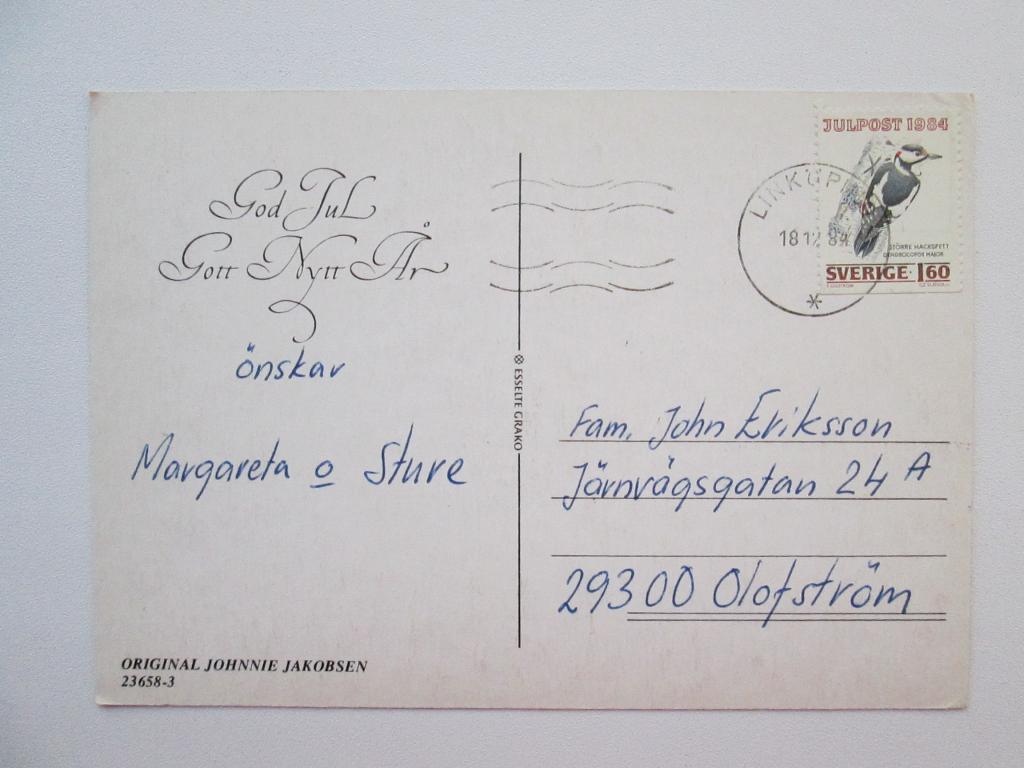 God Jul
Gott Nytt År
önskar
Margareta o Sture
ORIGINAL JOHNNIE JAKOBSEN
23658-3
ESSELTE GRAKO
JULPOST 1984
STÖRRE HACKSPETT
DENDROCOPOS MAJOR
SVERIGE 1.60
18 12 84
Fam. John Eriksson
Järnvägsgatan 24 A
29300 Olofström